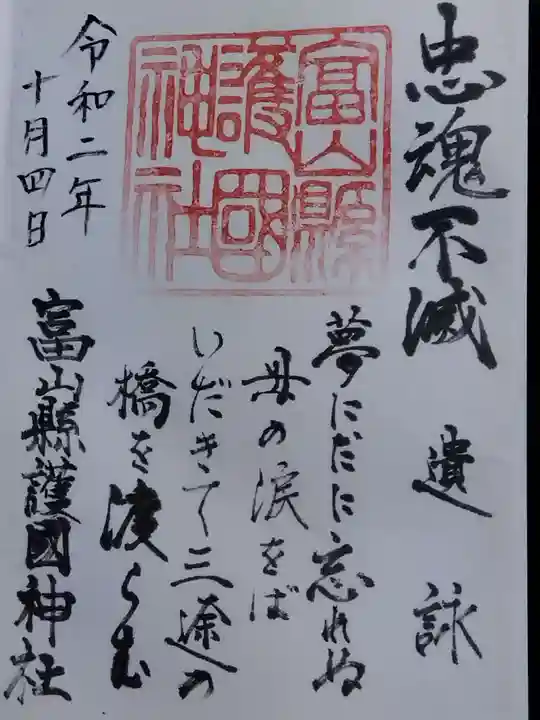 忠魂不滅
遺詠
夢にだに忘れぬ
母の涙をば
いだきて三途の
橋を渡らむ
富山縣護國神社
令和二年
十月四日
富山縣護國神社